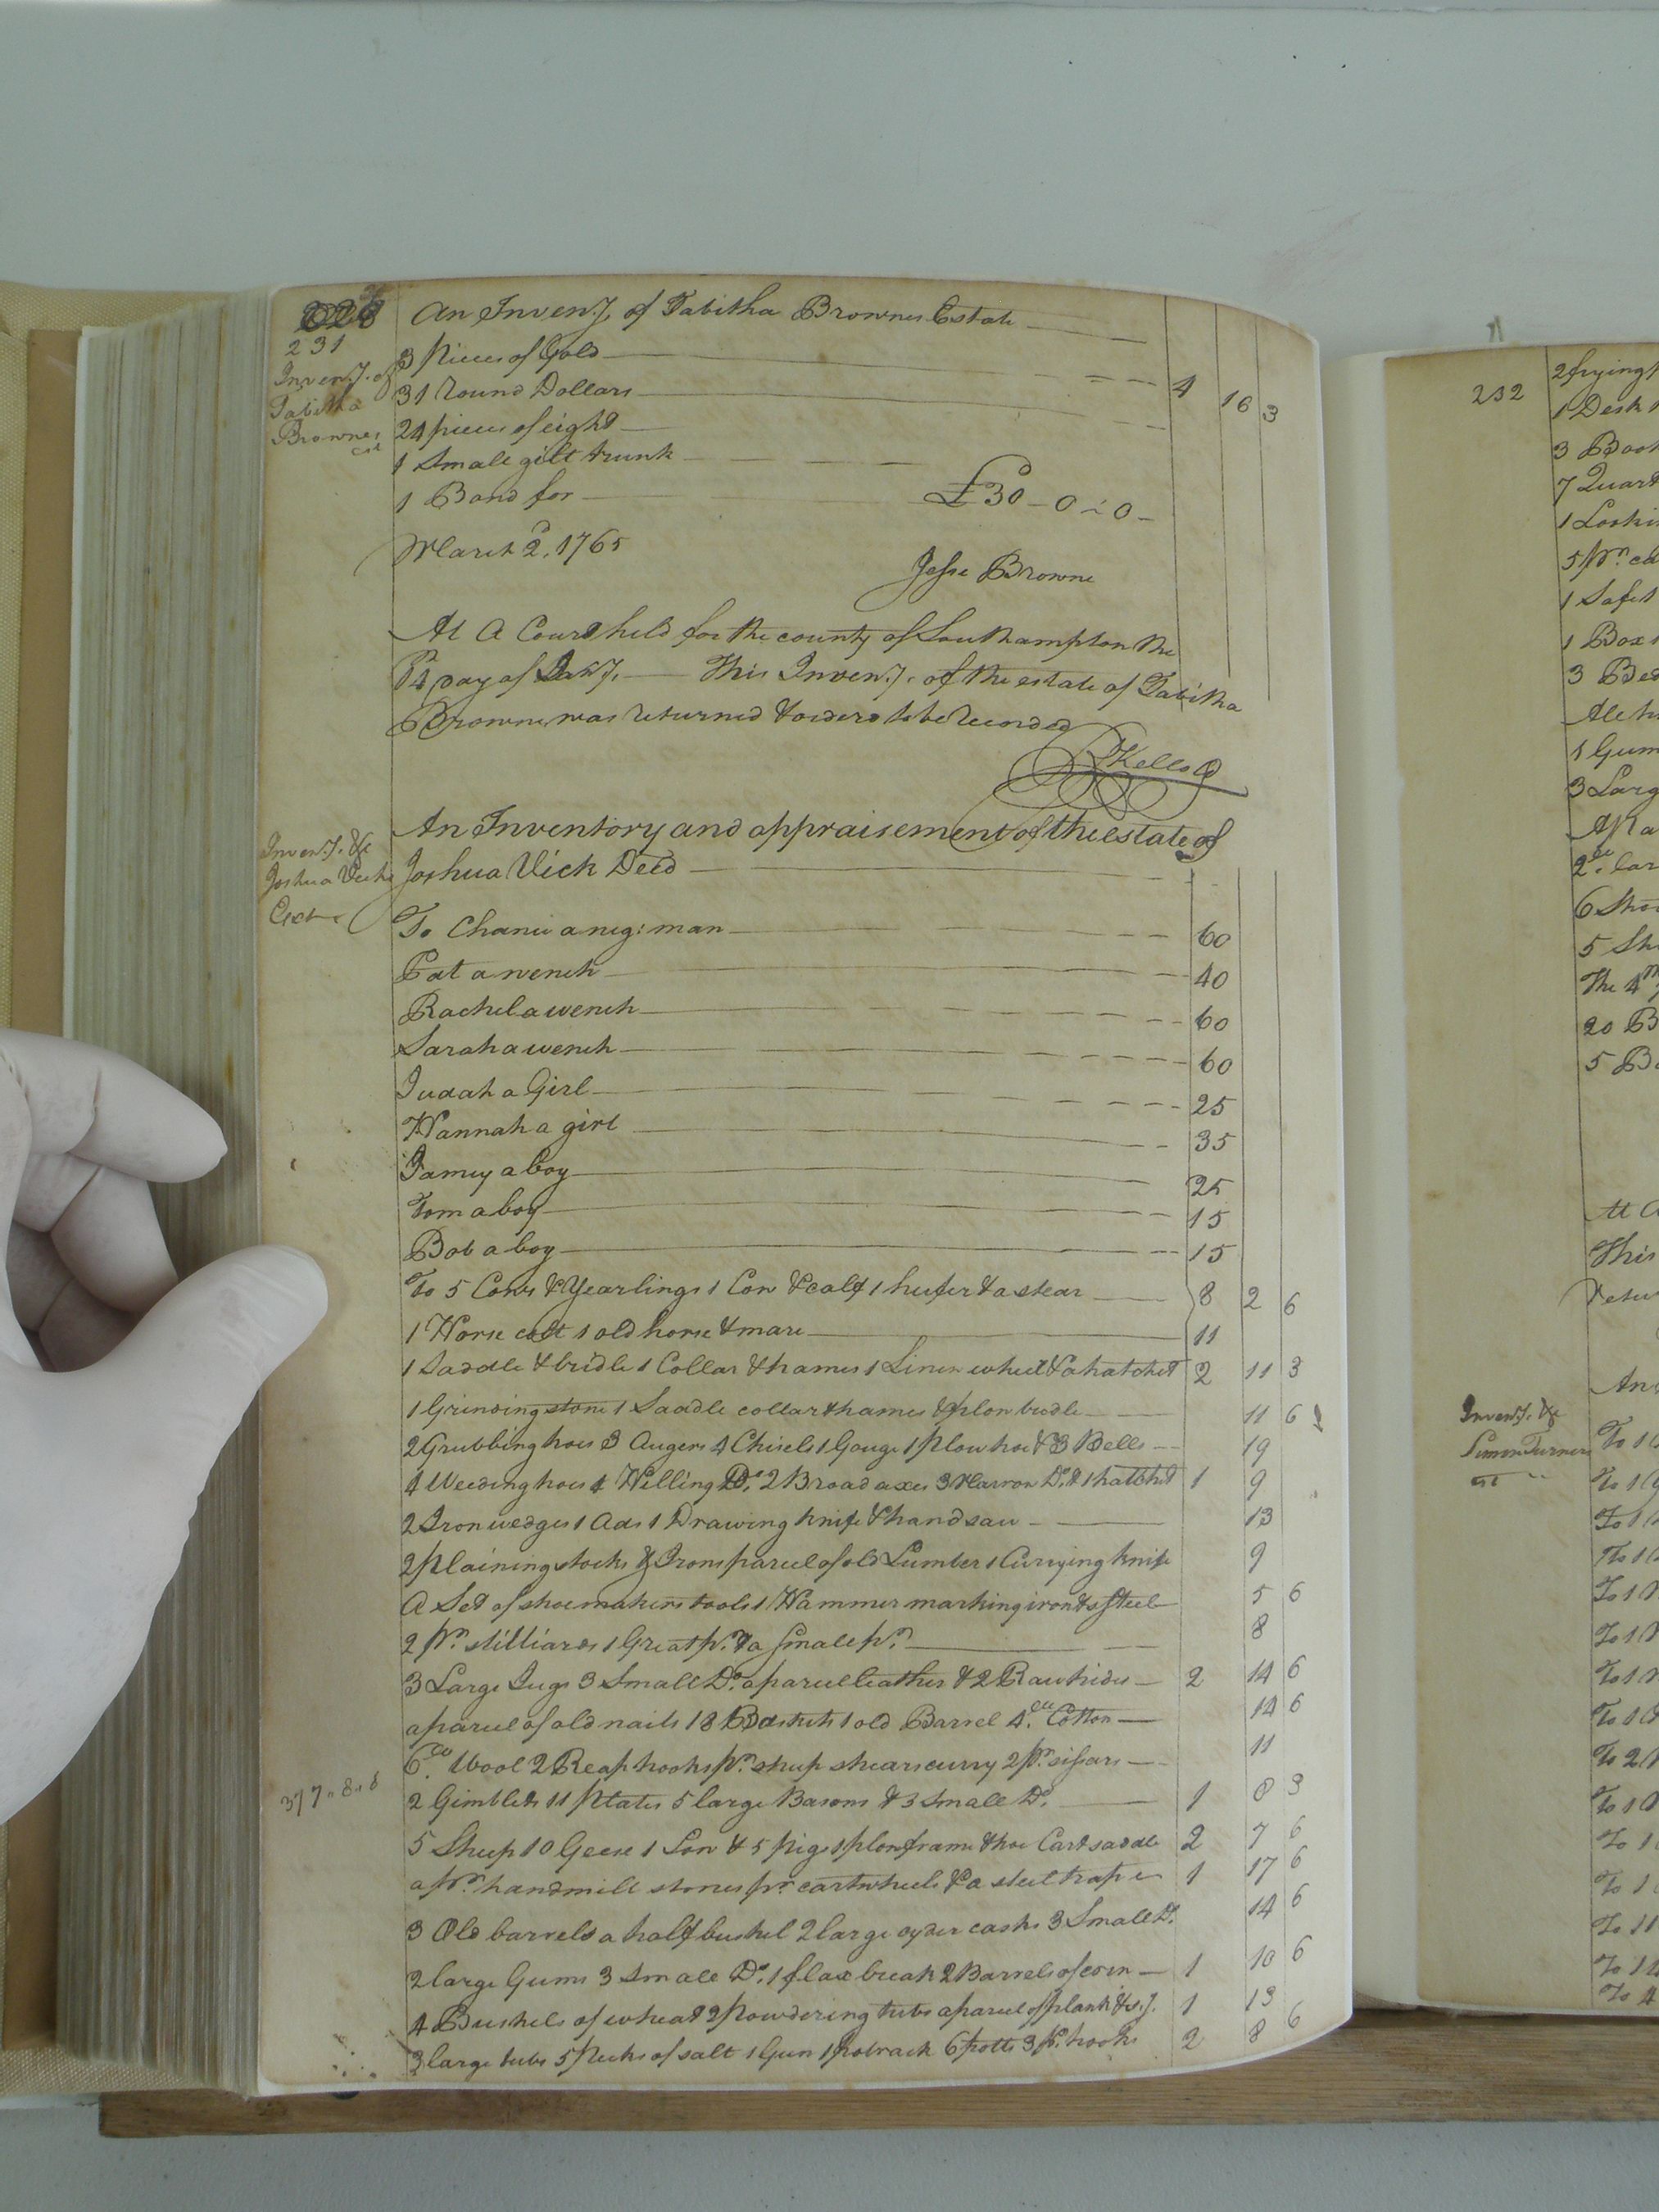 231
Inven.y. of
Tabitha
Brownes
est
An Inven.y. of Tabitha Brownes Estate
3 Pieces of Gold 4 16 3
31 round Dollars
24 pieces of eight
1 Small gilt trunk
1 Bond for £30-0-0-
March 2d. 1765
Jesse Browne
At a Court held for the county of Southampton the
day of This Inven.y. of the estate of Tabitha
Browne was returned & orderd to be recorded
R Kello
Inven.y. &c
Joshua Vicks
Est
An Inventory and appraisement of the estate of
Joshua Vick Decd
To a neg: man 60
Pat a wench 40
Rachel a wench 60
Sarah a wench 60
Judah a Girl 25
Hannah a girl 35
Jamey a boy 25
Tom a boy 15
Bob a boy 15
To 5 Cows & Yearlings 1 Cow & calf 1 heifer & a stear 8 2 6
1 Horse colt 1 old horse & mare 11
1 Saddle & bridle 1 Collar & hames 1 Linen wheel & a hatchet 2 11 3
1 Grinding stone 1 Saddle collar & hames & plow bridle 11 6
2 Grubbing hoes 3 Augers 4 Chisels 1 Gouge 1 Plow hoe & 3 Bells 19
4 Weeding hoes 4 Hilling Do. 2 Broad axes 3 Narrow Do. & 1 hatchet 1 9
2 Iron wedges 1 Ads 1 Drawing knife & handsaw 13
2 Plaining stocks & Irons parcel of old Lumber 1 Currying knife 9
A Set of shoemakers tools 1 Hammer marking iron & steel 5 6
2 pr. stilliards 1 Great pr. & a small pr. 8
3 Large Jugs 3 Small Do. a parcel leather & 2 Raw hides 2 14 6
a parcel of old nails 18 Baskets 1 old Barrel 4.lb Cotton 14 6
6.lb Wool 2 Reap hooks pr. sheep shears curry 2 pr. sissars 11
2 Gimblets 11 Plates 5 large Basons & 3 Small Do. 1 8 3
377..8..6
5 Sheep 10 Geese 1 Sow & 5 pigs 1 plow frame & hoe Cart saddle 2 7 6
a pr. handmill stones pr cart wheels & a steel trap 1 17 6
3 Old barrels a half bushel 2 large cyder casks 3 Small Do. 14 6
2 large Gums 3 Small Do. 1 flax break 2 Barrels of corn 1 10 6
4 Bushels of wheat 2 Powdering tubs a parcel of plank 1 13
3 large tubs 5 Pecks of salt 1 Gun 1 potrack 6 potts 3 pr. hooks 2 8 6
232
2 frying
1 Desk
3 Boo
7 Quar
1 Looki
5 pr.
1 Safe
1 Box
3 Bed
1 Gum
3 Larg
A Pa
6 Sho
5 Sh
The 4
20 B
5 B
At a
This
retu
An
Inven.y. &c
Simon Turners
est
To 1
To 1
To 1
To 1
To 1
To 1
To 1
To 1
To 2
To 1
To 1
To 1
To 11
To 1
To 4